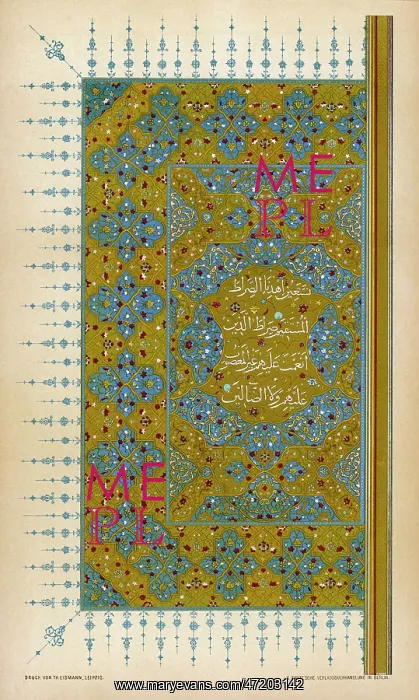 نستعين اهدنا الصراط
المستقيم صراط الذين
أنعمت عليهم غير المغضوب
عليهم ولا الضالين
ME
PL
ME
PL
DRUCK VON TH. EISMANN, LEIPZIG.
VERLAGSBUCHHANDLUNG IN BERLIN.
www.maryevans.com/47203142